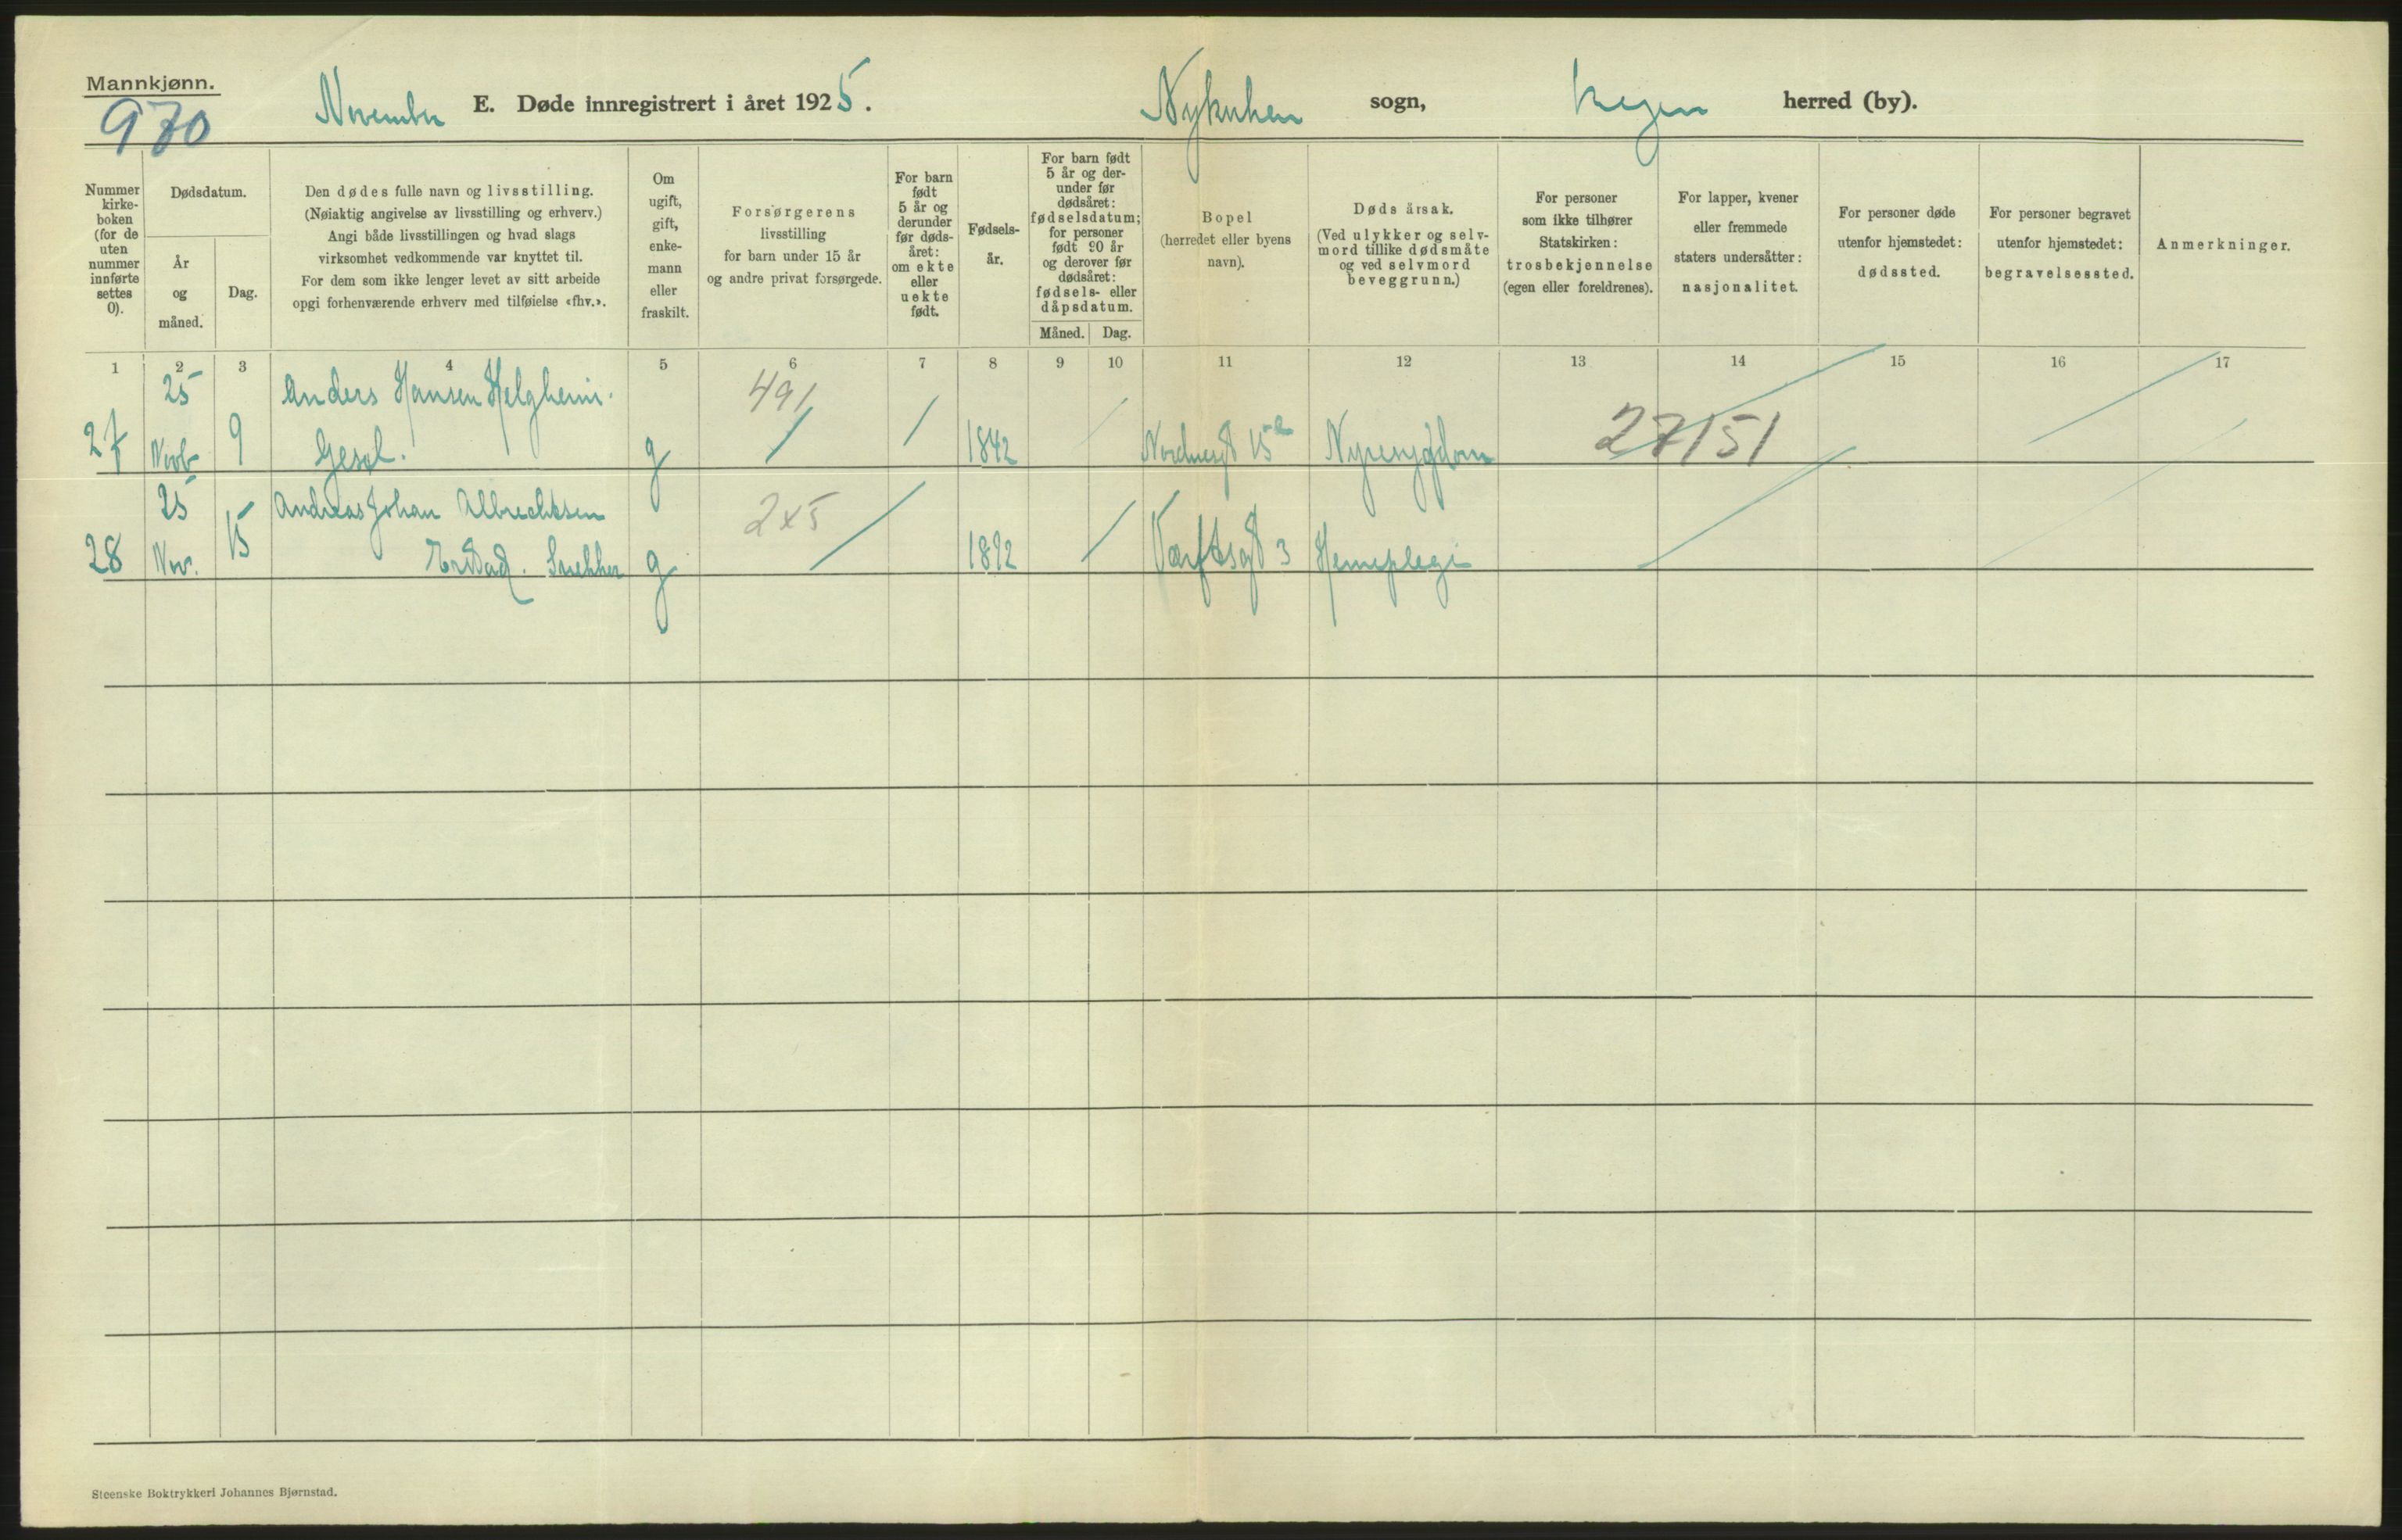 Mannkjønn.
970
November E. Døde innregistrert i året 1925. Nykirken sogn, Bergen herred (by).
Nummer kirke-boken (for de uten nummer innførte settes 0).
Dødsdatum.
År og måned.
Dag.
Den dødes fulle navn og livsstilling.
(Nøiaktig angivelse av livsstilling og erhverv.)
Angi både livsstillingen og hvad slags
virksomhet vedkommende var knyttet til.
For dem som ikke lenger levet av sitt arbeide
opgi forhenværende erhverv med tilføielse «fhv.».
Om ugift, gift, enke-mann eller fraskilt.
Forsørgerens
livsstilling
for barn under 15 år
og andre privat forsørgede.
For barn født 5 år og derunder før døds-året: om ekte eller uekte født.
Fødsels-år.
For barn født 5 år og der-under før dødsåret: fødselsdatum; for personer født 90 år og derover før dødsåret: fødsels- eller dåpsdatum.
Måned. Dag.
Bopel
(herredet eller byens
navn).
Dødsårsak.
(Ved ulykker og selv-
mord tillike dødsmåte
og ved selvmord
beveggrunn.)
For personer
som ikke tilhører
Statskirken:
trosbekjennelse
(egen eller foreldrenes).
For lapper, kvener
eller fremmede
staters undersåtter:
nasjonalitet.
For personer døde
utenfor hjemstedet:
dødssted.
For personer begravet
utenfor hjemstedet:
begravelsessted.
Anmerkninger.
1 2 3 4 5 6 7 8 9 10 11 12 13 14 15 16 17
25 Anders Hansen Helgheim. 491
27 Novb 9 Gesel. g 1842 Nordnesgt 15 Nyresygdom 27151
25 Andreas Johan Albrechtsen 2x5
28 Nov. 15 Snekker g 1892 Værftsgt 3 Hemeplegi
Steenske Boktrykkeri Johannes Bjørnstad.